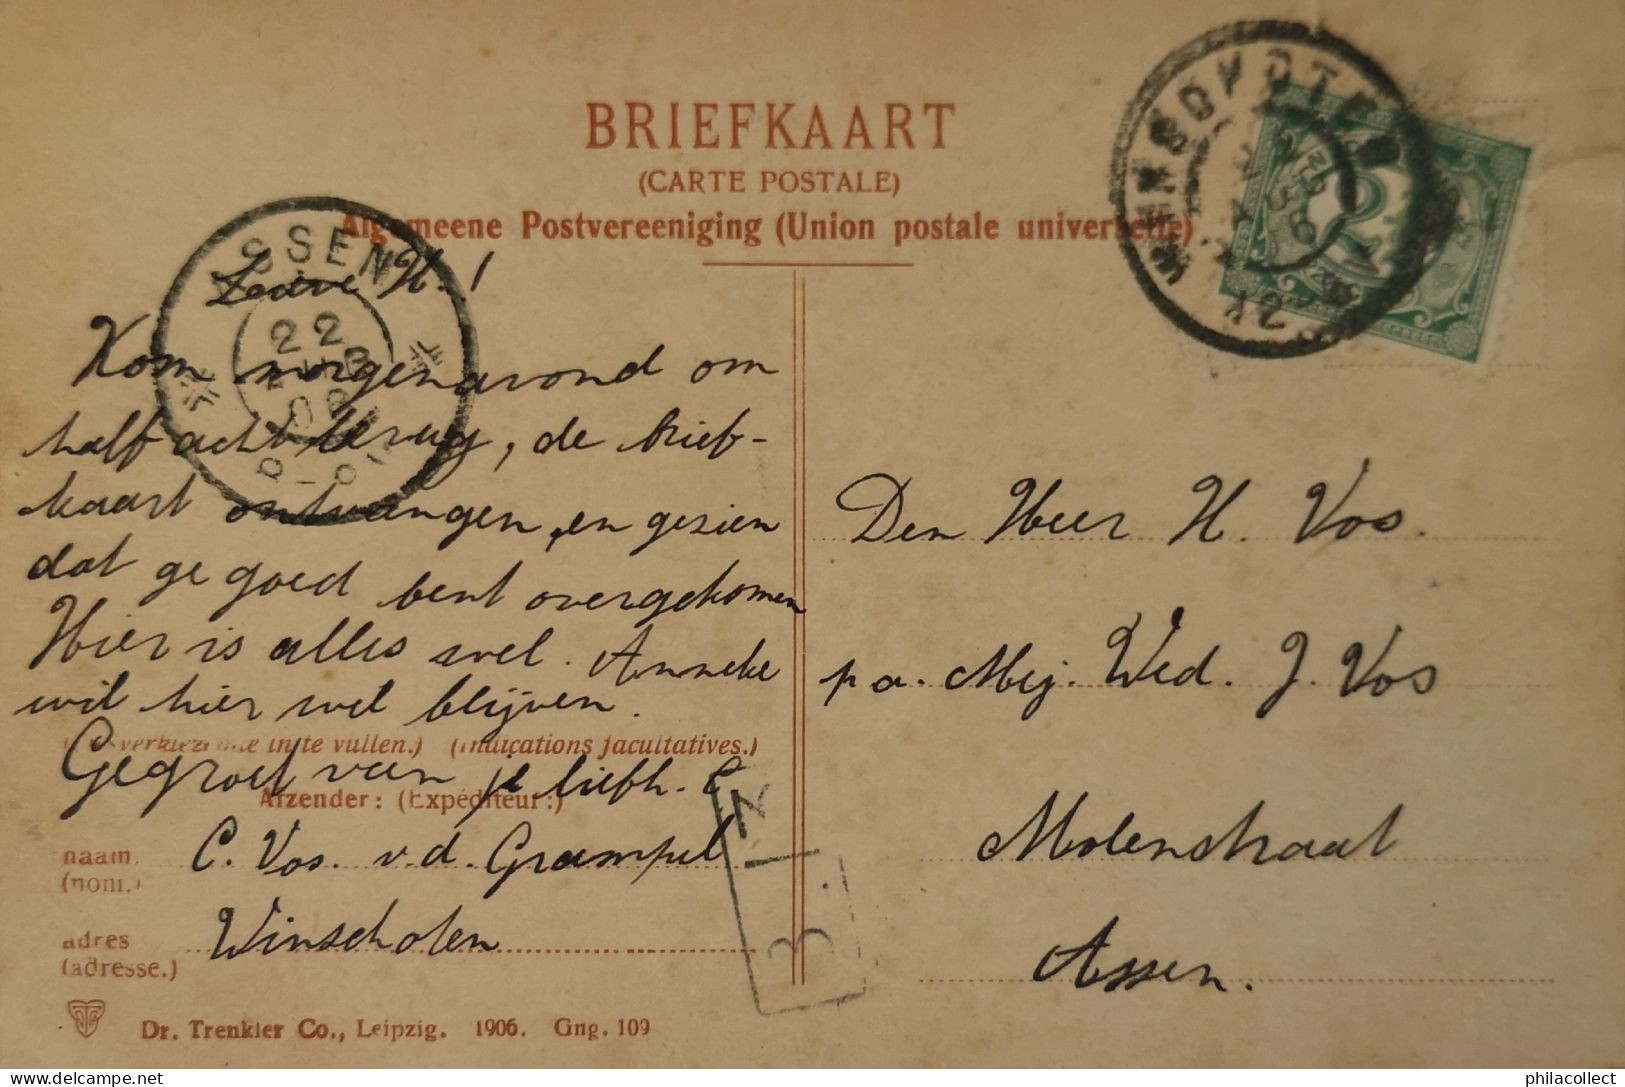 BRIEFKAART
(CARTE POSTALE)
Algemeene Postvereeniging (Union postale universelle)
ASSEN
22
AUG
Lieve H.!
Kom morgenavond om
half acht terug, de brief-
kaart ontvangen, en gezien
dat ge goed bent overgekomen
Hier is alles wel. Anneke
wil hier wel blijven.
(Desverkiezende in te vullen.) (Indications facultatives.)
Gegroet van je liefh. C
Afzender: (Expéditeur:)
naam C. Vos. v.d. Grampel
(nom.)
adres Winschoten
(adresse.)
Dr. Trenkler Co., Leipzig. 1906. Gng. 109
2½
Den Heer H. Vos.
p a. Mej. Wed. J. Vos
Molenstraat
Assen.
philacollect